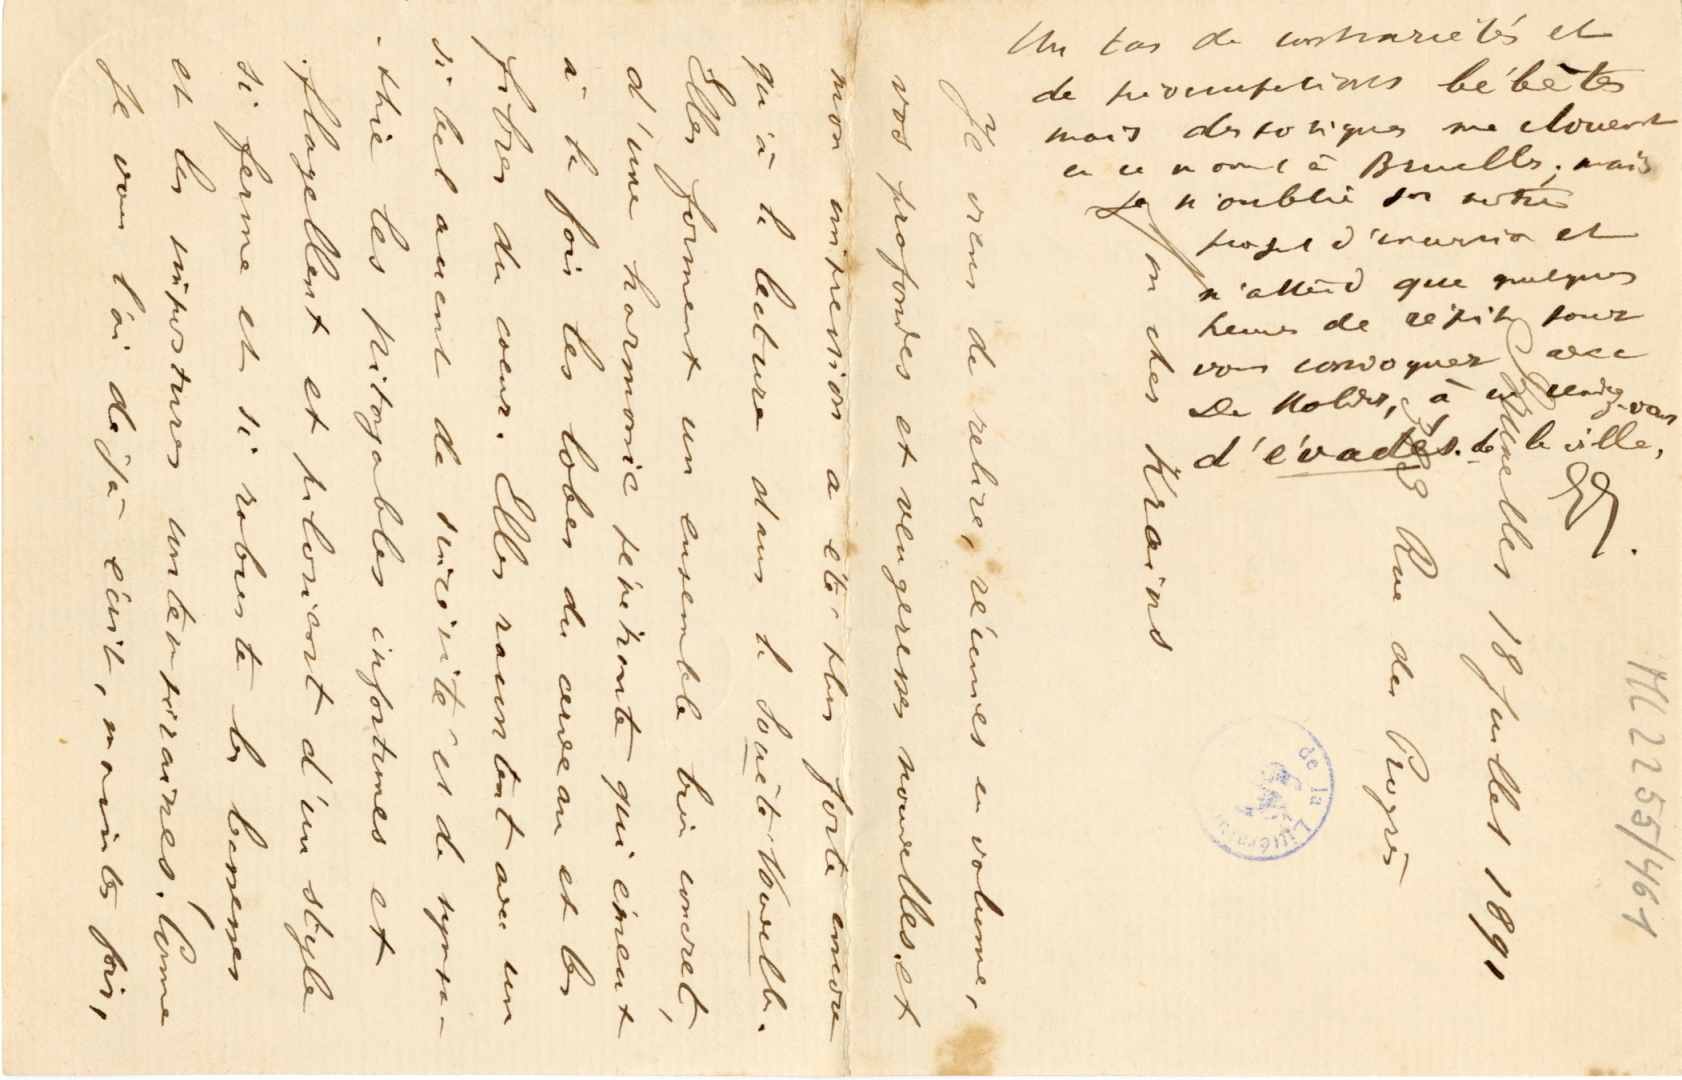 Bruxelles 18 Juillet 1891
Rue du Progrès
Mon cher Krains
Je viens de relire, réunies en volume,
vos profondes et vengeresses nouvelles et
mon impression a été plus forte encore
qu'à la lecture dans la Société Nouvelle.
Elles forment un ensemble bien concret,
d'une harmonie poignante qui émeut
à la fois les lobes du cerveau et les
fibres du coeur. Elles racontent avec un
si bel accent de sincérité et de sympa-
thie les pitoyables infortunes et
flagellent et pilorient d'un style
si ferme et si robuste les bassesses
et les impostures contemporaines. Comme
je vous l'ai déjà écrit, maintes fois,
Un tas de contrariétés et
de préoccupations bébêtes
mais despotiques me clouent
en ce moment à Bruxelles; mais
je n'oublie pas notre
projet d'excursion et
n'attend que quelques
heures de répit pour
vous convoquer avec
De Molder, à un rendez-vous
d'évadés de la ville.
GE.
ML 2255/461
de la Littérature